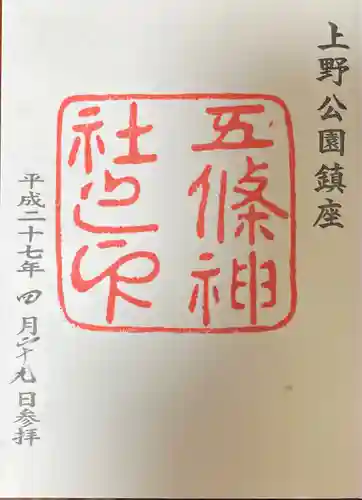 上野公園鎮座
五條神
社之印
平成二十七年四月二十九日参拝